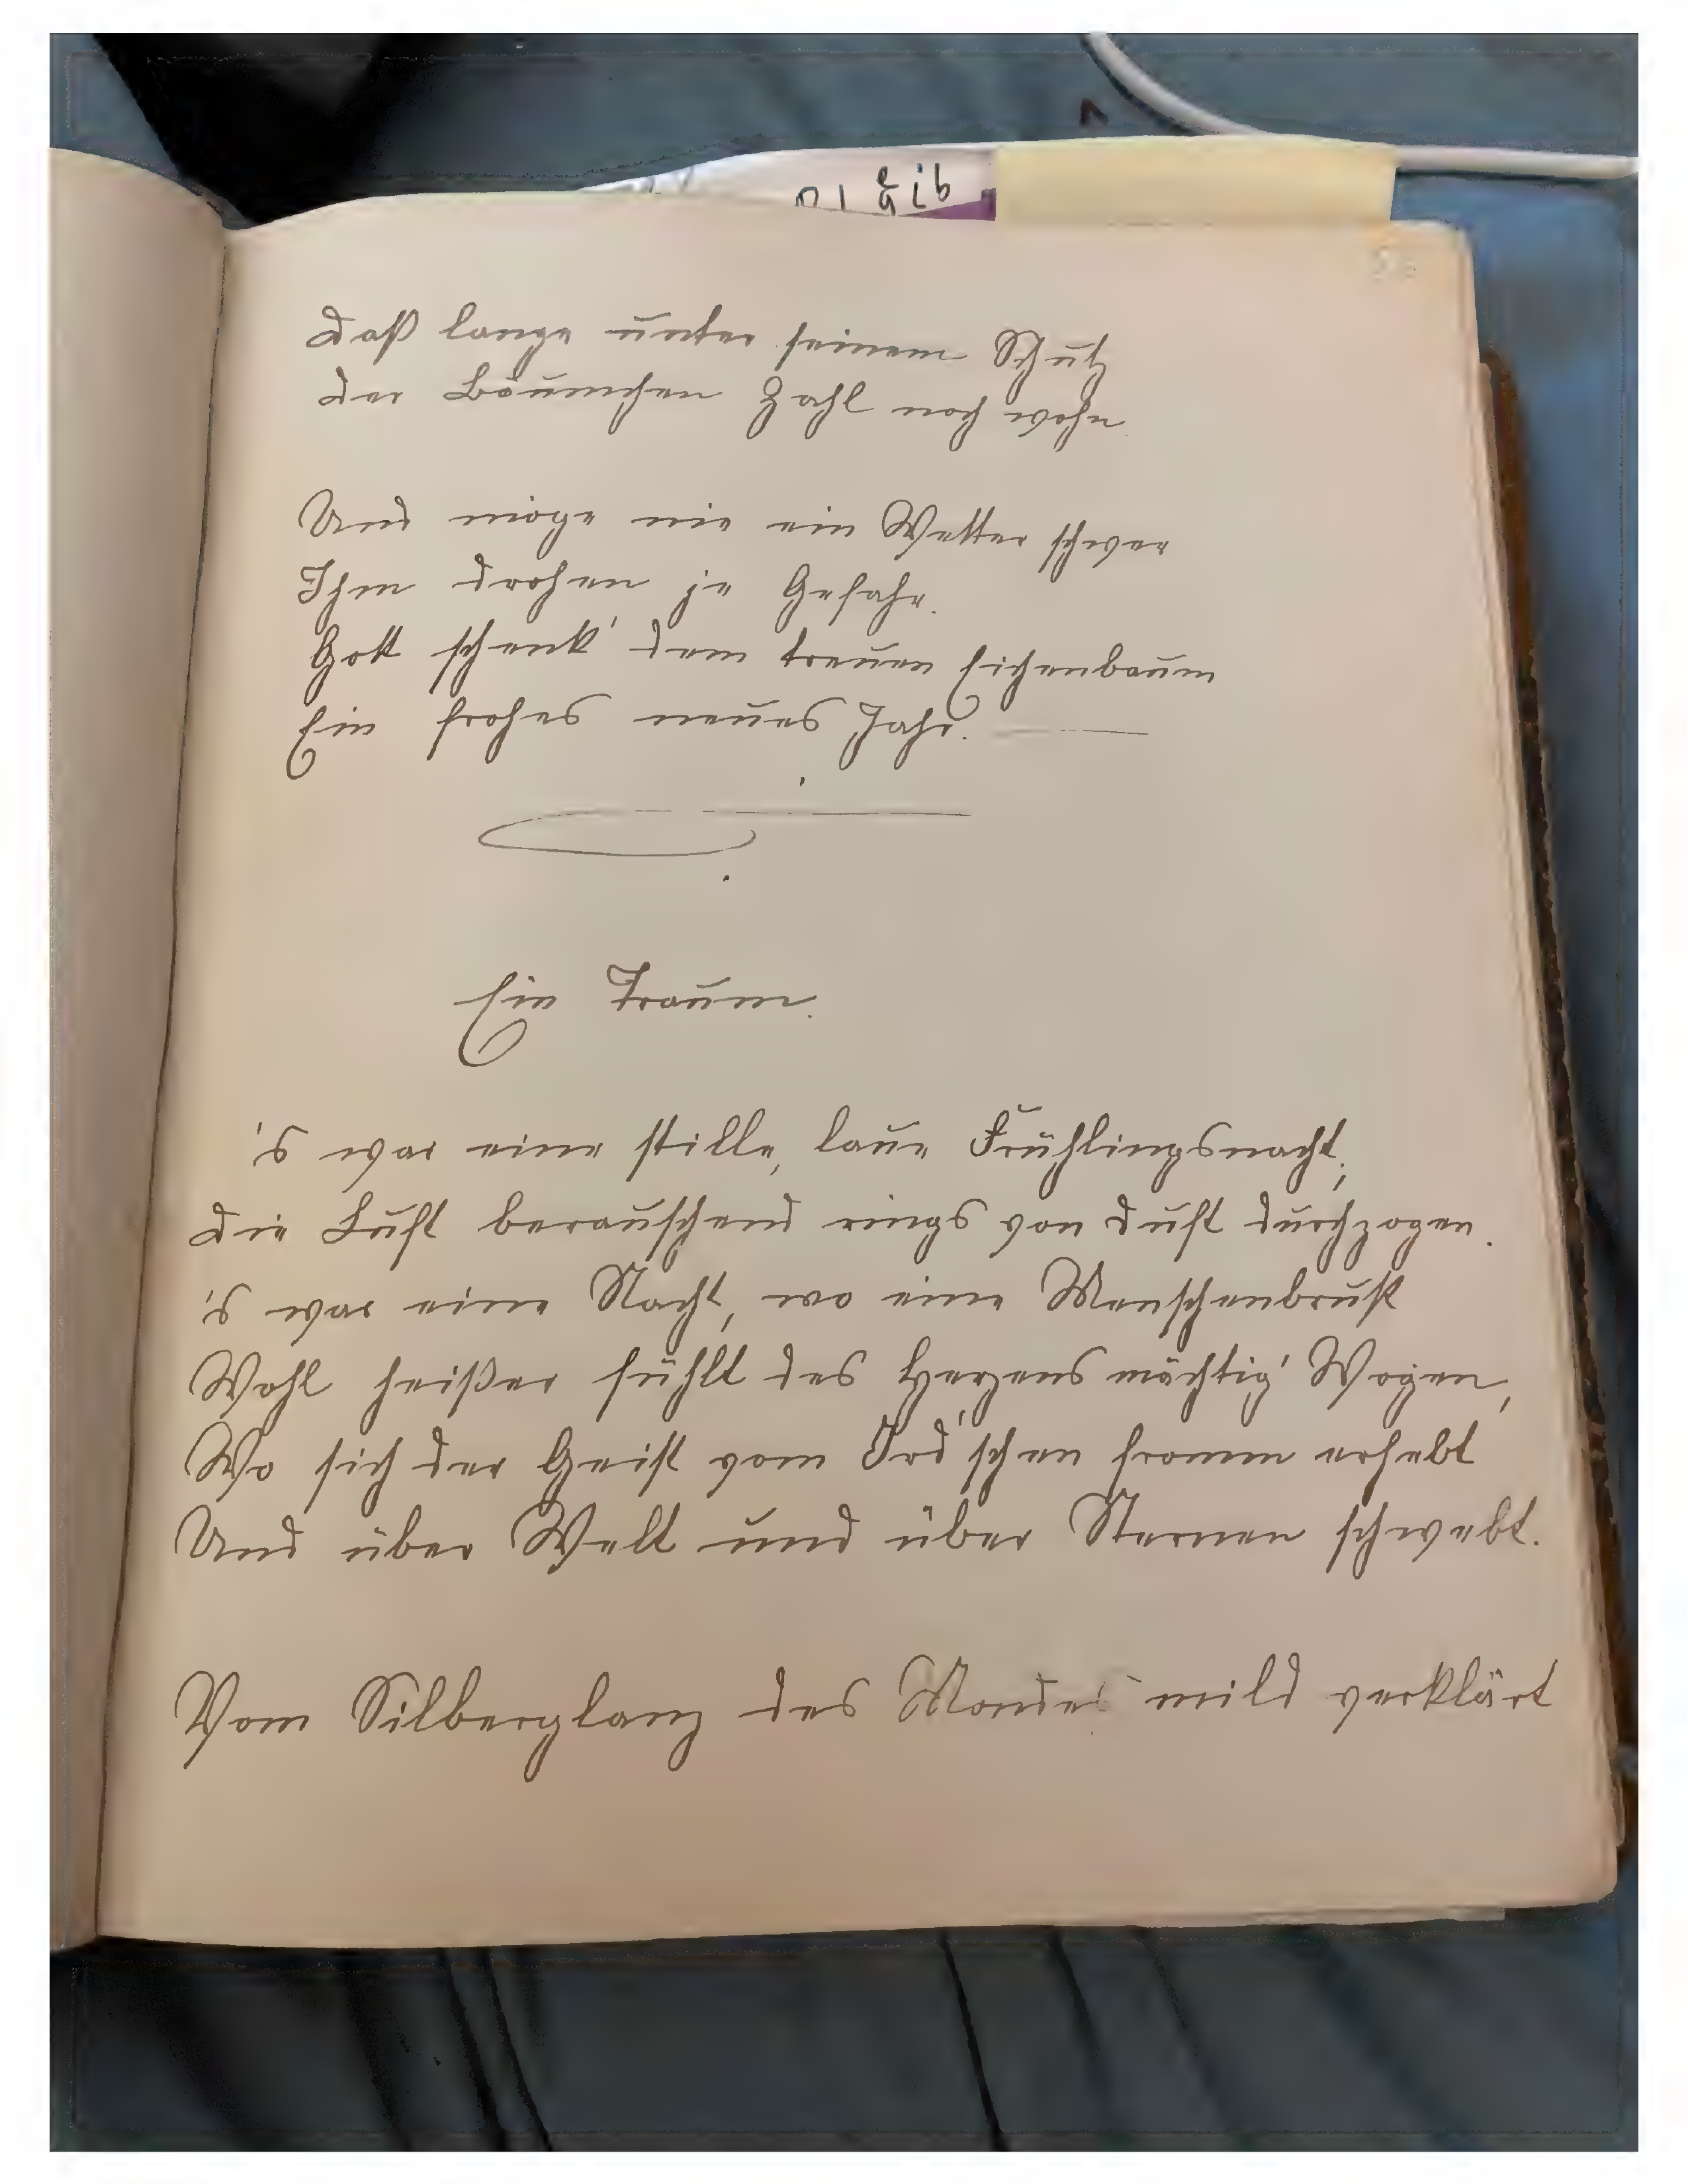 Daß lange unter seinem Schutz
Der Bäumchen Zahl noch wohn
Und möge nie ein Wetter schwer
Ihm drohen je Gefahr.
Gott schenk' dem treuen Eichenbaum
Ein frohes neues Jahr.
Ein Traum.
's war eine stille, laue Frühlingsnacht,
Die Luft berauschend rings von Duft durchzogen.
's war eine Nacht, wo eine Menschenbrust
Wohl heißer fühlt des Herzens mächtig' Wogen,
Wo sich der Geist vom Ird'schen fromm erhebt
Und über Welt und über Sternen schwebt.
Vom Silberglanz des Mondes mild verklärt